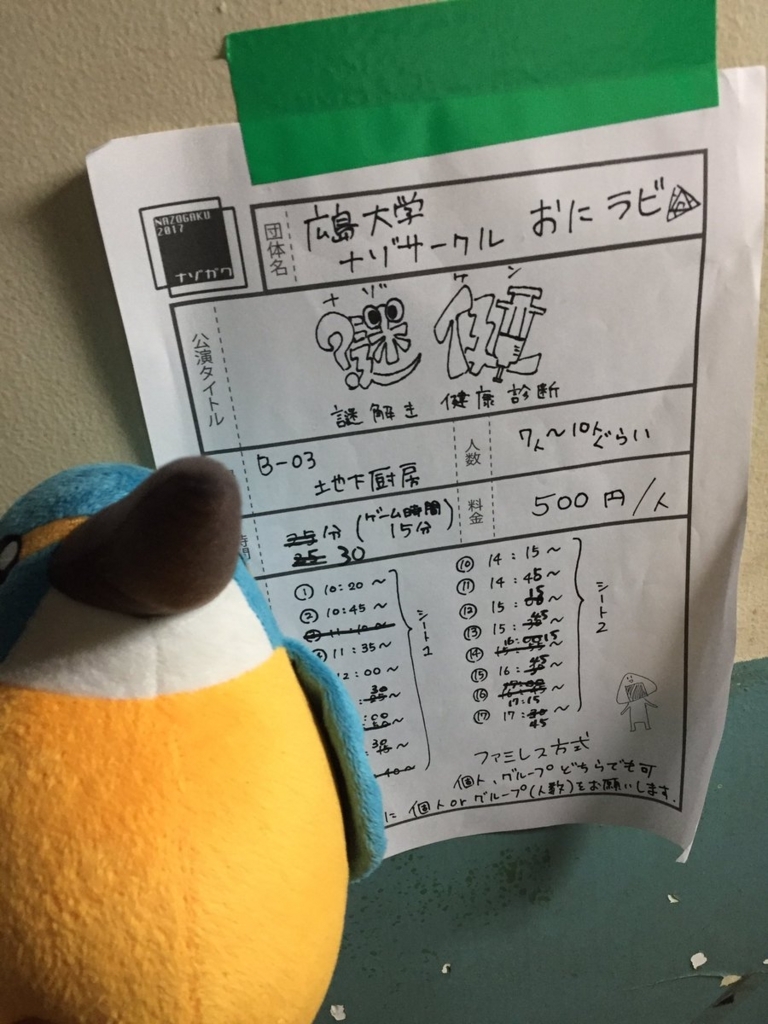 NAZOGAKU
2017
ナゾガク
団体名
広島大学
ナゾサークル おにラビ
公演タイトル
ナゾ
ケン
謎解き 健康診断
B-03
地下厨房
人数
7人〜10人ぐらい
分 (ゲーム時間 15分)
30
料金
500円/人
① 10:20〜
② 10:45〜
11:35〜
12:00〜
シート1
⑩ 14:15〜
⑪ 14:45〜
⑫ 15:15〜
⑬ 15:45〜
⑭ 16:15〜
⑮ 16:45〜
⑯ 17:15〜
⑰ 17:45〜
シート2
ファミレス方式
個人、グループどちらでも可
に 個人orグループ(人数)をお願いします。